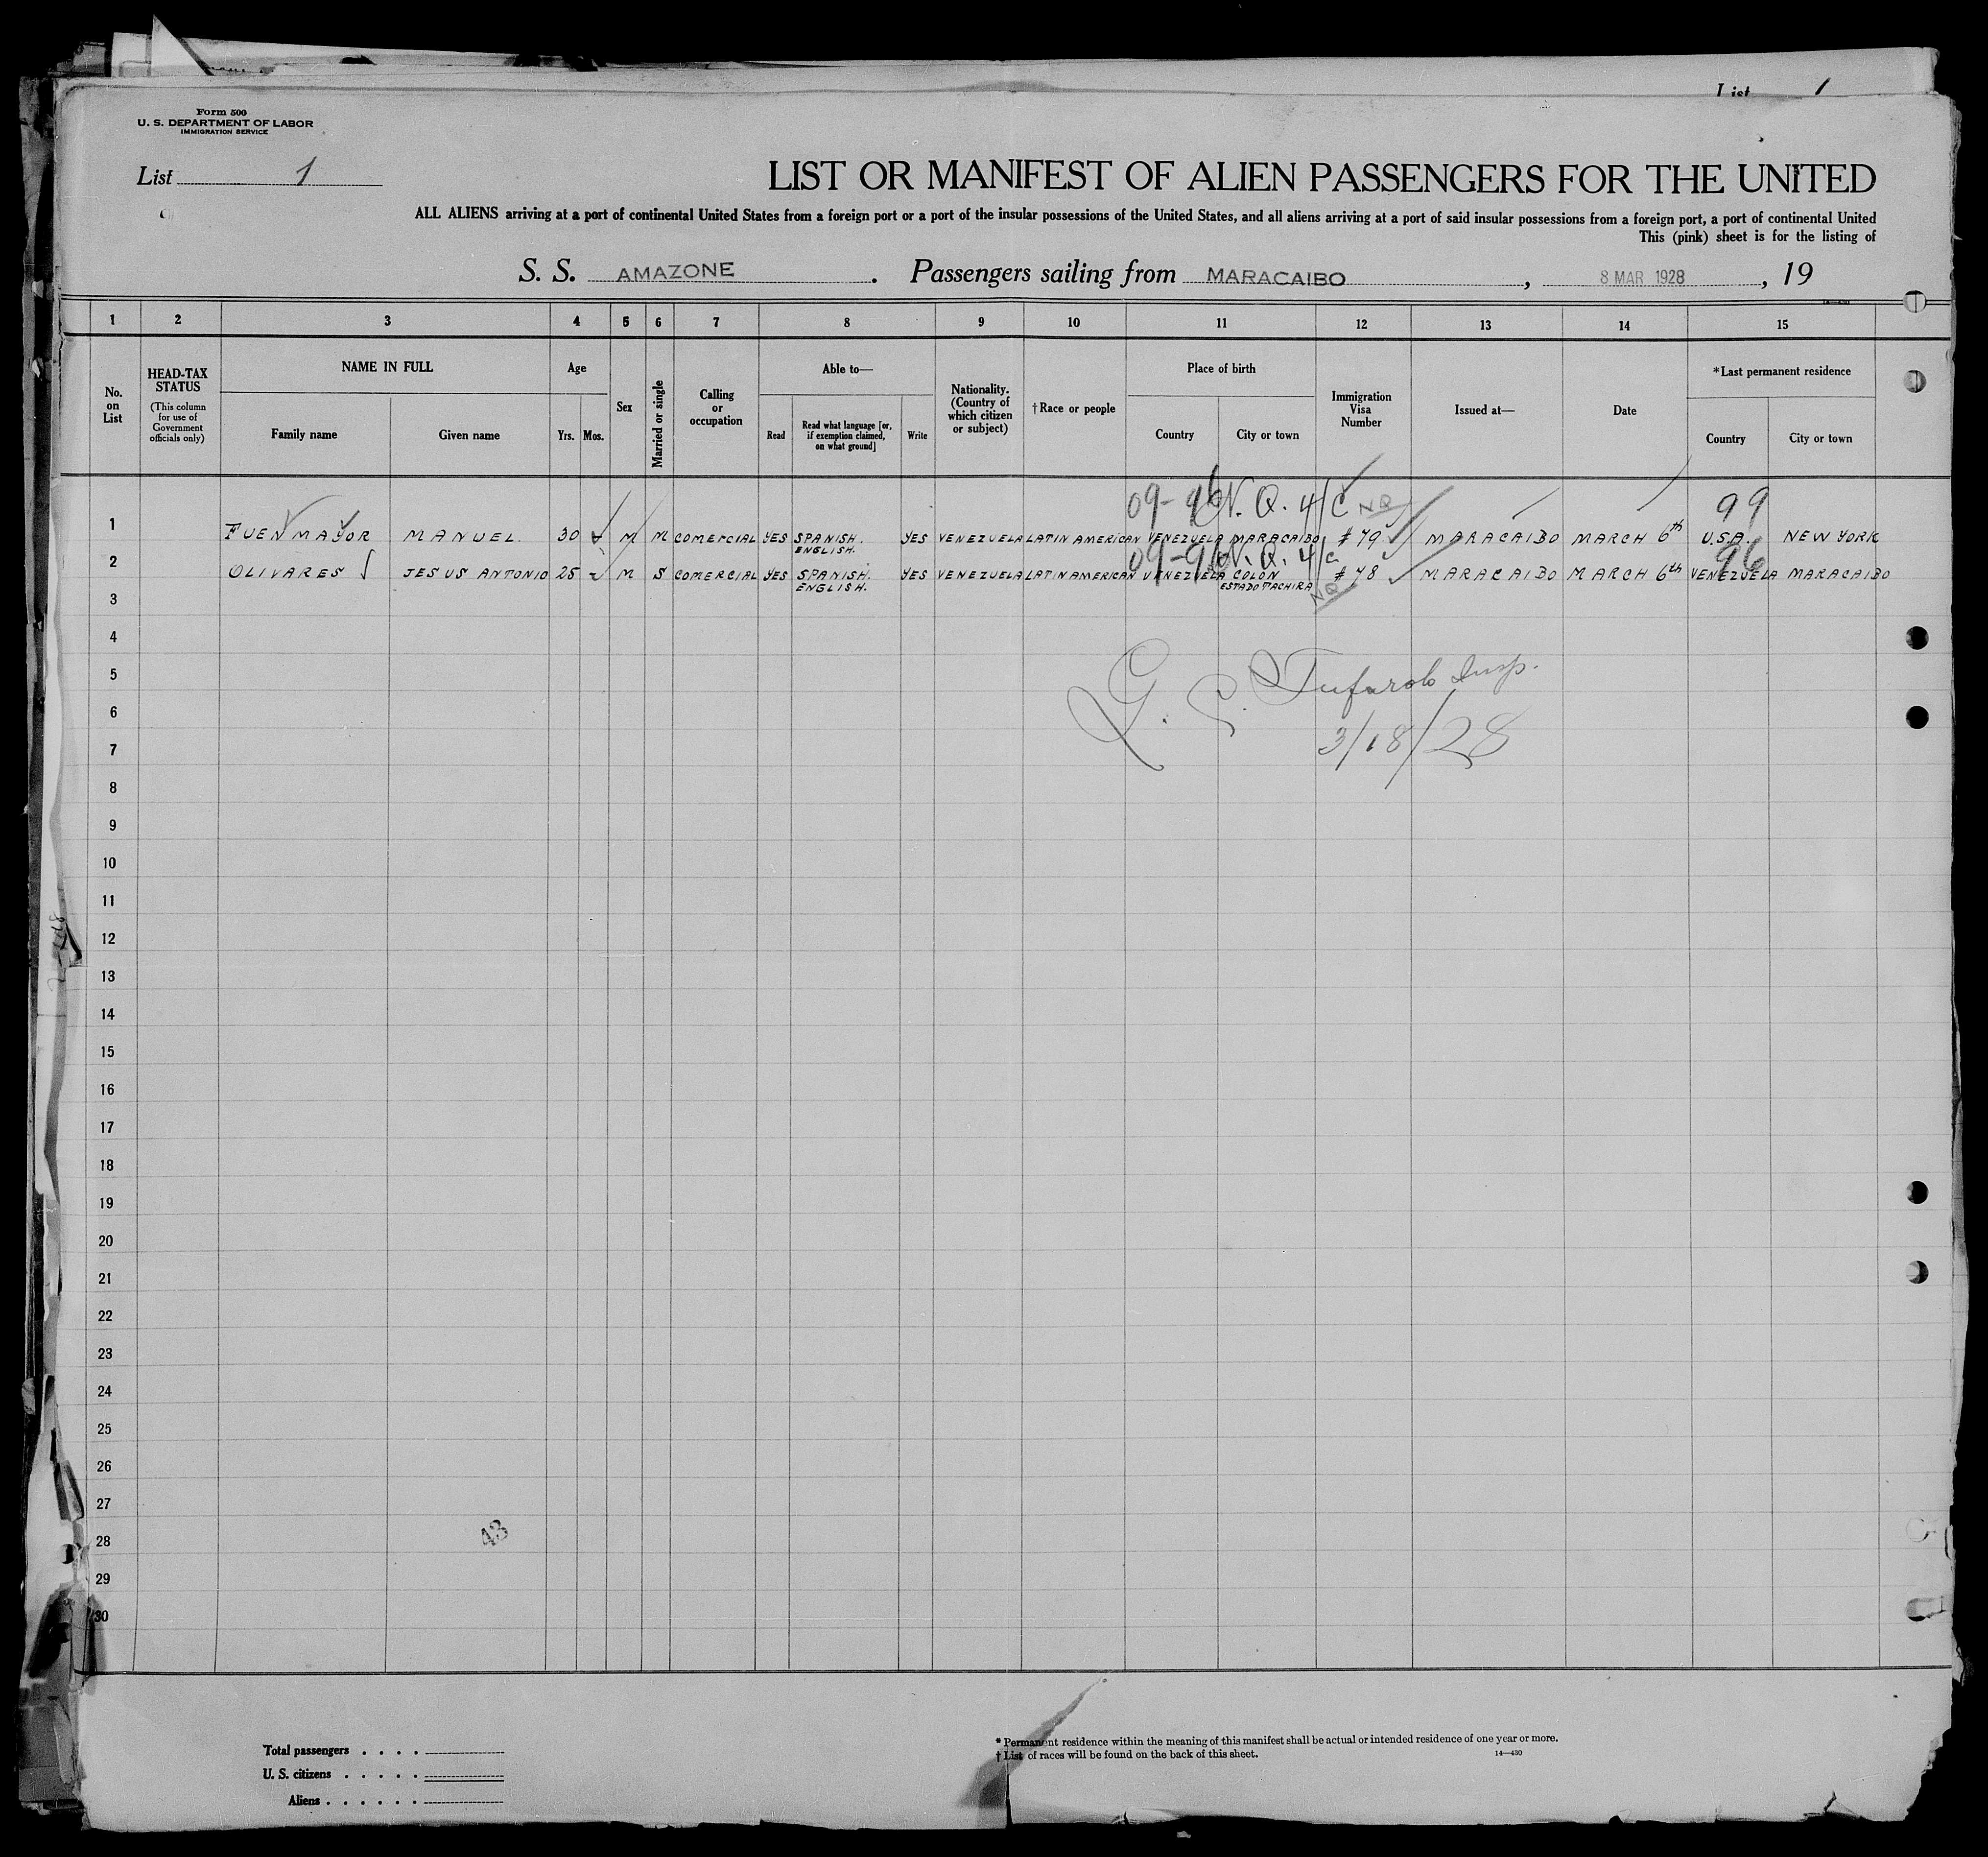 List 1
Form 500
U. S. DEPARTMENT OF LABOR
IMMIGRATION SERVICE
List 1
LIST OR MANIFEST OF ALIEN PASSENGERS FOR THE UNITED
ALL ALIENS arriving at a port of continental United States from a foreign port or a port of the insular possessions of the United States, and all aliens arriving at a port of said insular possessions from a foreign port, a port of continental United
This (pink) sheet is for the listing of
S. S. AMAZONE. Passengers sailing from MARACAIBO, 8 MAR 1928, 19
1 2 3 4 5 6 7 8 9 10 11 12 13 14 15
No. on List
HEAD-TAX STATUS
(This column for use of Government officials only)
NAME IN FULL
Family name Given name
Age
Yrs. Mos.
Sex
Married or single
Calling or occupation
Able to—
Read
Read what language [or, if exemption claimed, on what ground]
Write
Nationality. (Country of which citizen or subject)
†Race or people
Place of birth
Country City or town
Immigration Visa Number
Issued at—
Date
*Last permanent residence
Country City or town
09-96 N. Q. 4/C NQ 99
1 FUENMAYOR MANUEL. 30 M M COMERCIAL YES SPANISH. ENGLISH. YES VENEZUELA LATIN AMERICAN VENEZUELA MARACAIBO #79 MARACAIBO MARCH 6th U.S.A. NEW YORK
09-96 N. Q. 4/C 96
2 OLIVARES JESUS ANTONIO 25 M S COMERCIAL YES SPANISH. ENGLISH. YES VENEZUELA LATIN AMERICAN VENEZUELA COLON ESTADO TACHIRA #78 MARACAIBO MARCH 6th VENEZUELA MARACAIBO
NQ
3
4
5
Insp.
6
7
3/18/28
8
9
10
11
12
13
14
15
16
17
18
19
20
21
22
23
24
25
26
27
28
43
29
30
Total passengers . . . .
U. S. citizens . . . . .
Aliens . . . . . .
* Permanent residence within the meaning of this manifest shall be actual or intended residence of one year or more.
† List of races will be found on the back of this sheet. 14—430